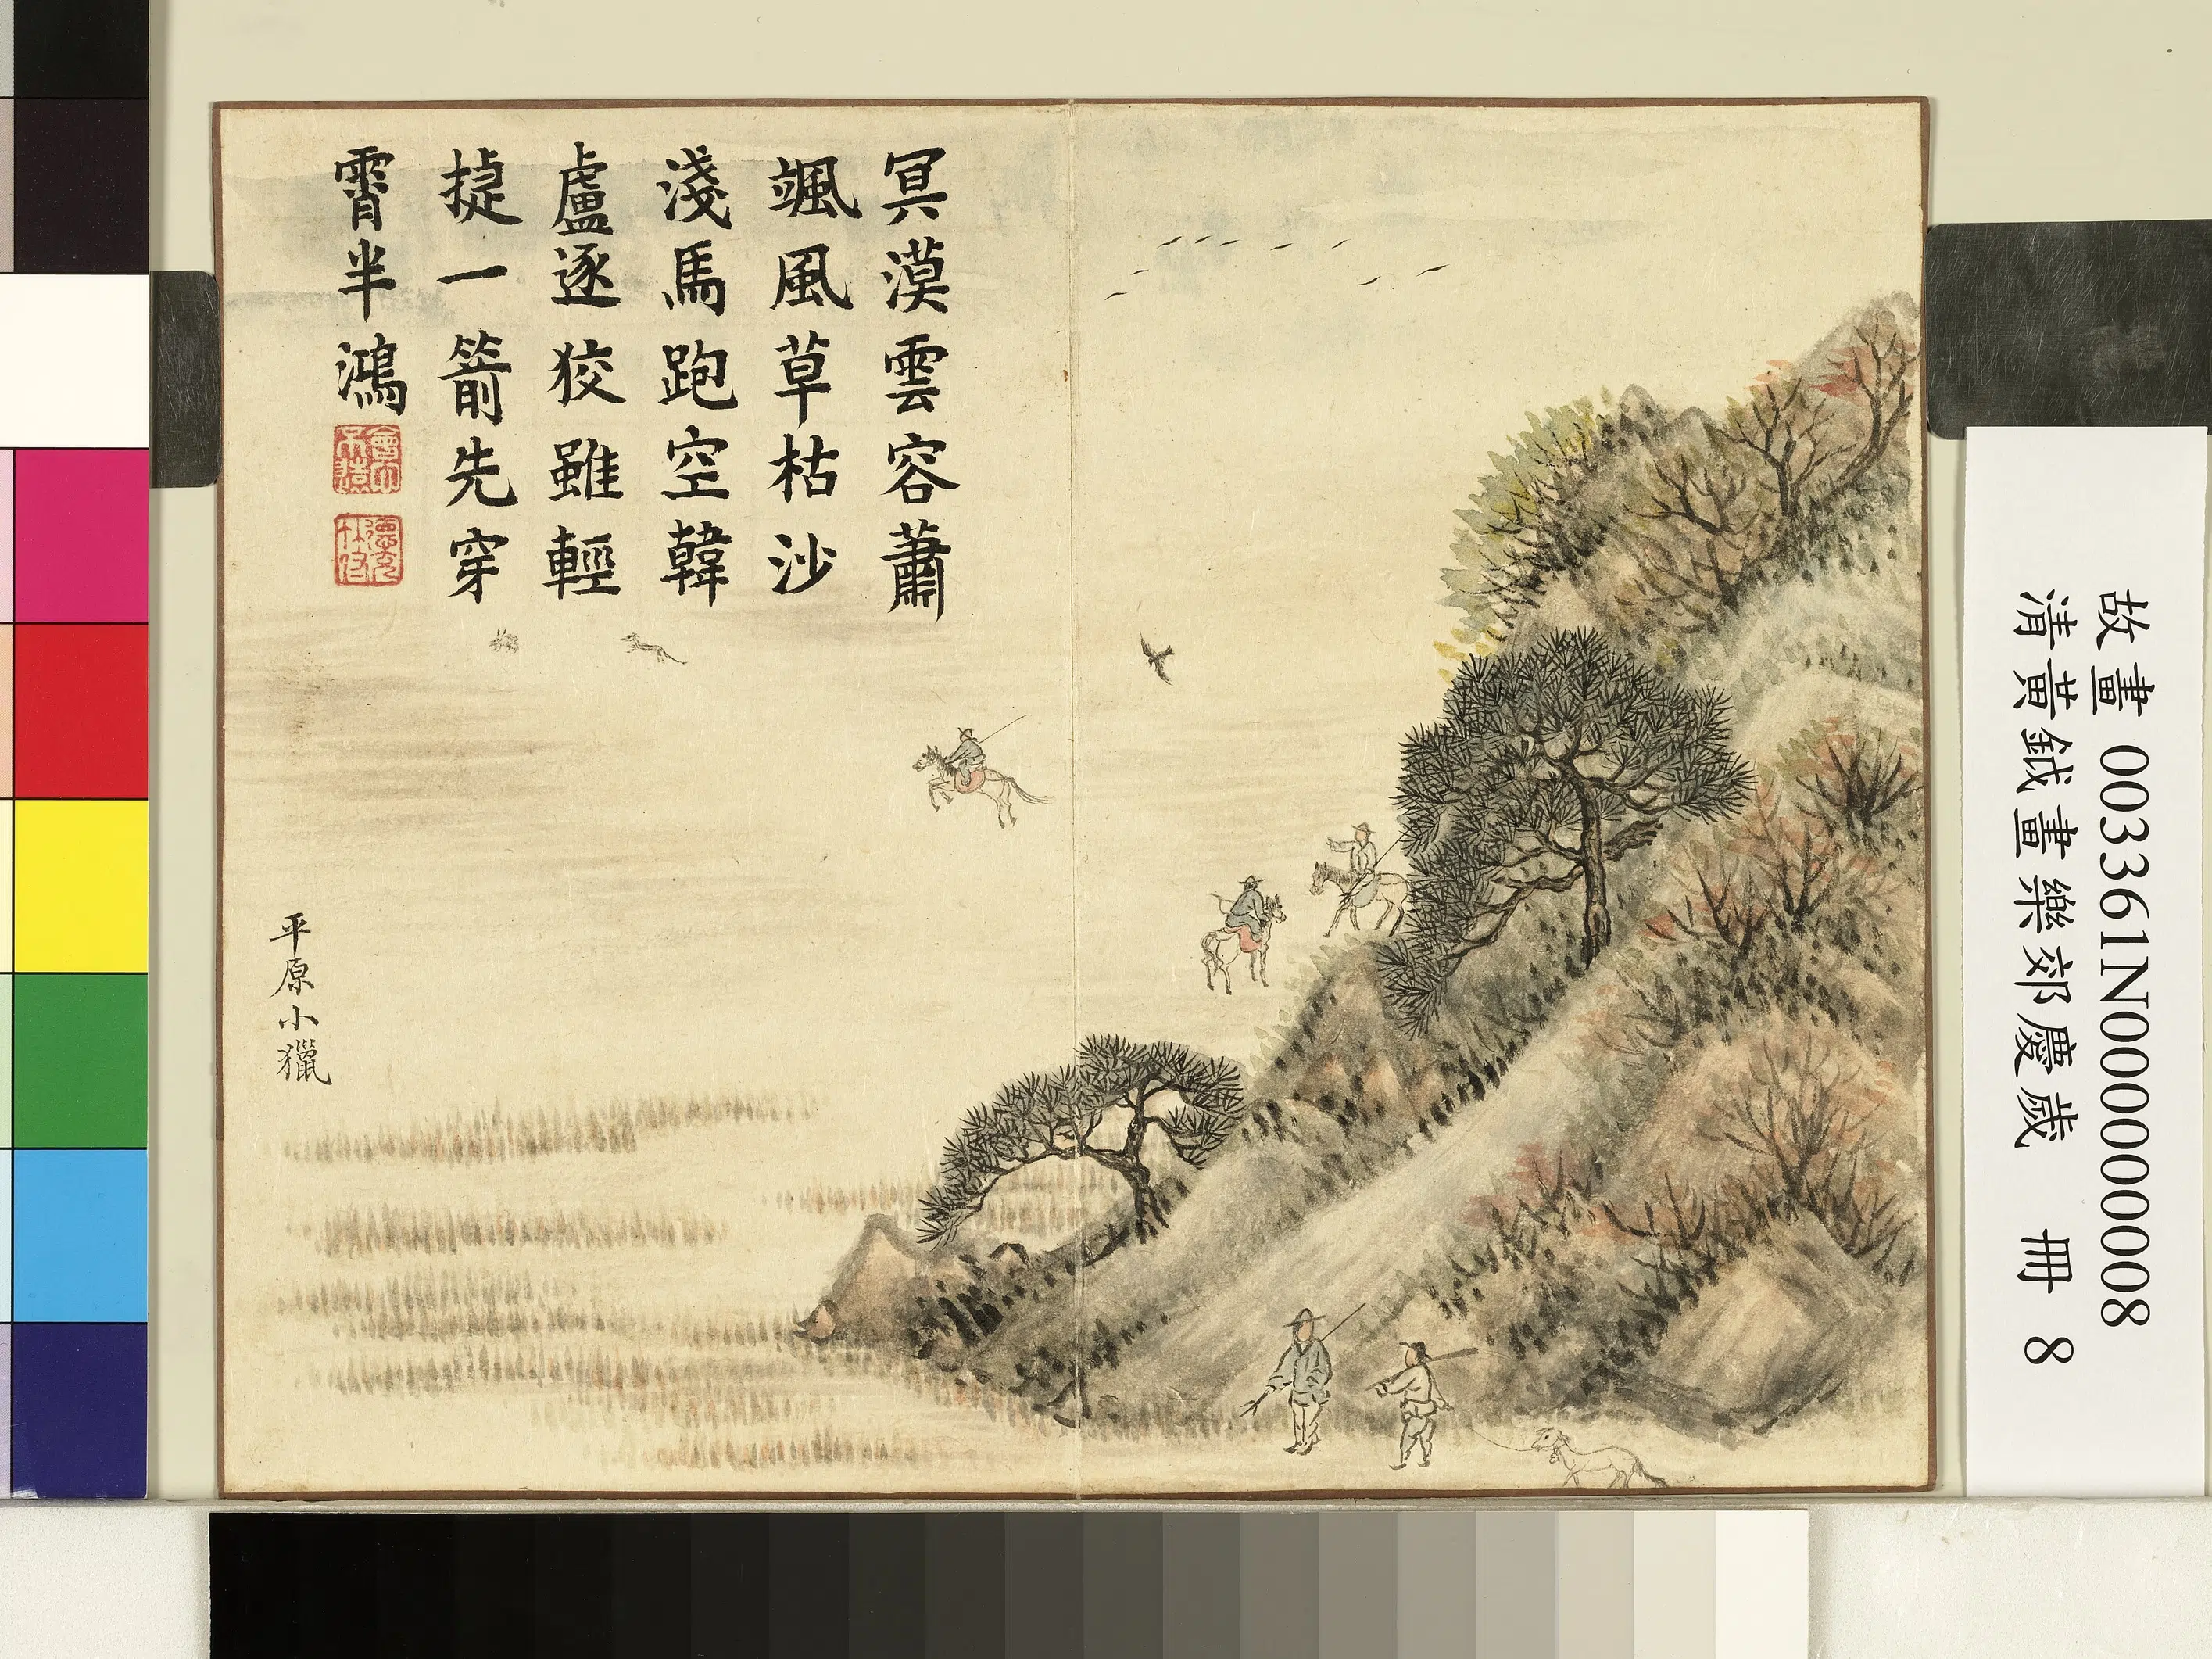 冥漠雲容蕭
颯風草枯沙
淺馬跑空韓
盧逐狡雖輕
㨗一箭先穿
霄半鴻
平原小獵
故畫 003361N000000008
清黃鉞畫樂郊慶歲 冊 8